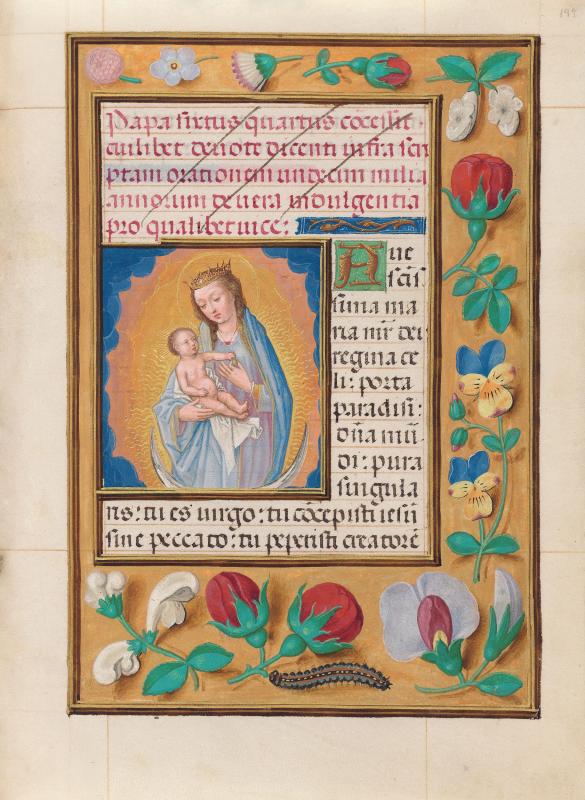 199
Papa sixtus quartus cōcessit
cuilibet deuote dicenti infra scri
ptam orationem undecim milia
annorum de uera indulgentia
pro qualibet uice:
Aue
scīs
sima ma
ria mr̄ dei
regina ce
li: porta
paradisi:
dn̄a mū
di: pura
singula
ris: tu es uirgo: tu cōcepisti iesū
sine peccato: tu peperisti creatorē